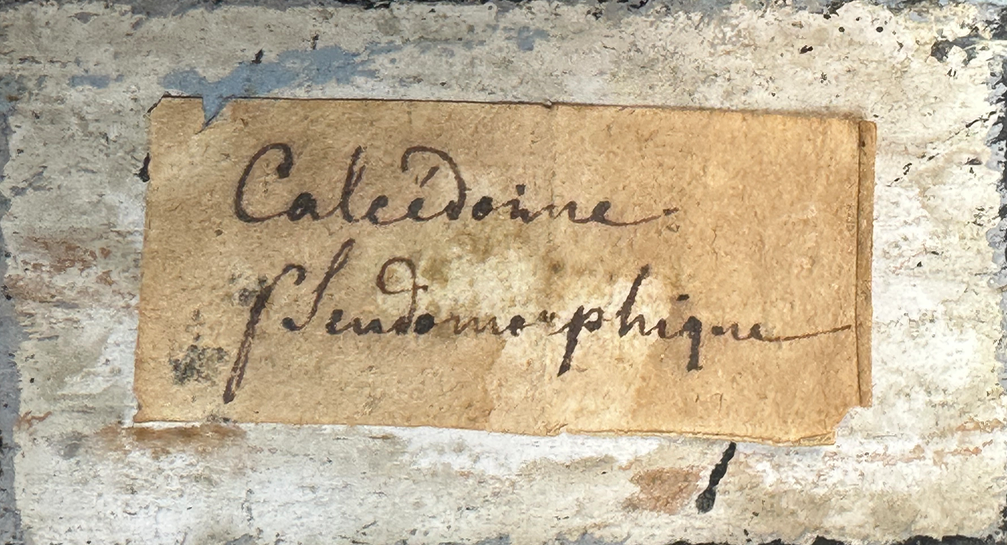 Calcédoine
pseudomorphique